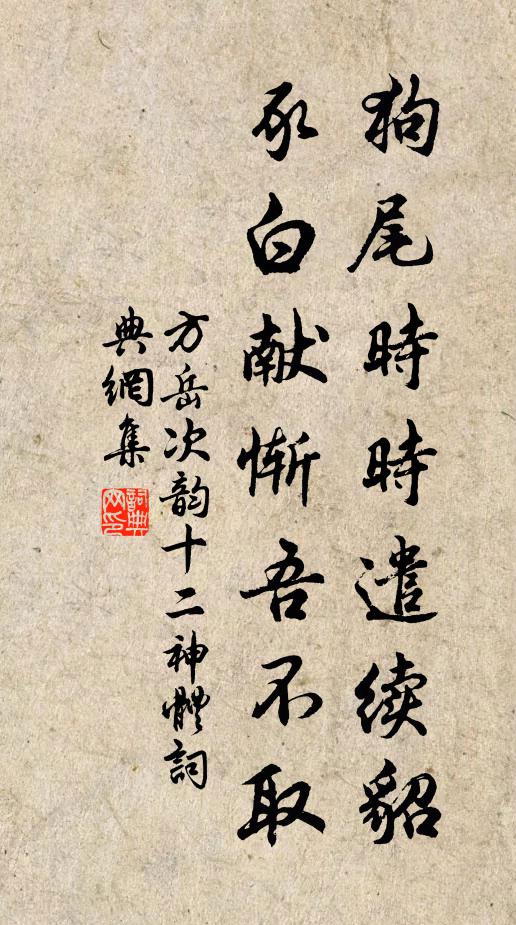 狗尾時時遣续貂
豕白献慚吾不取
方岳次韵十二神體詞
典網集
詞典
网印